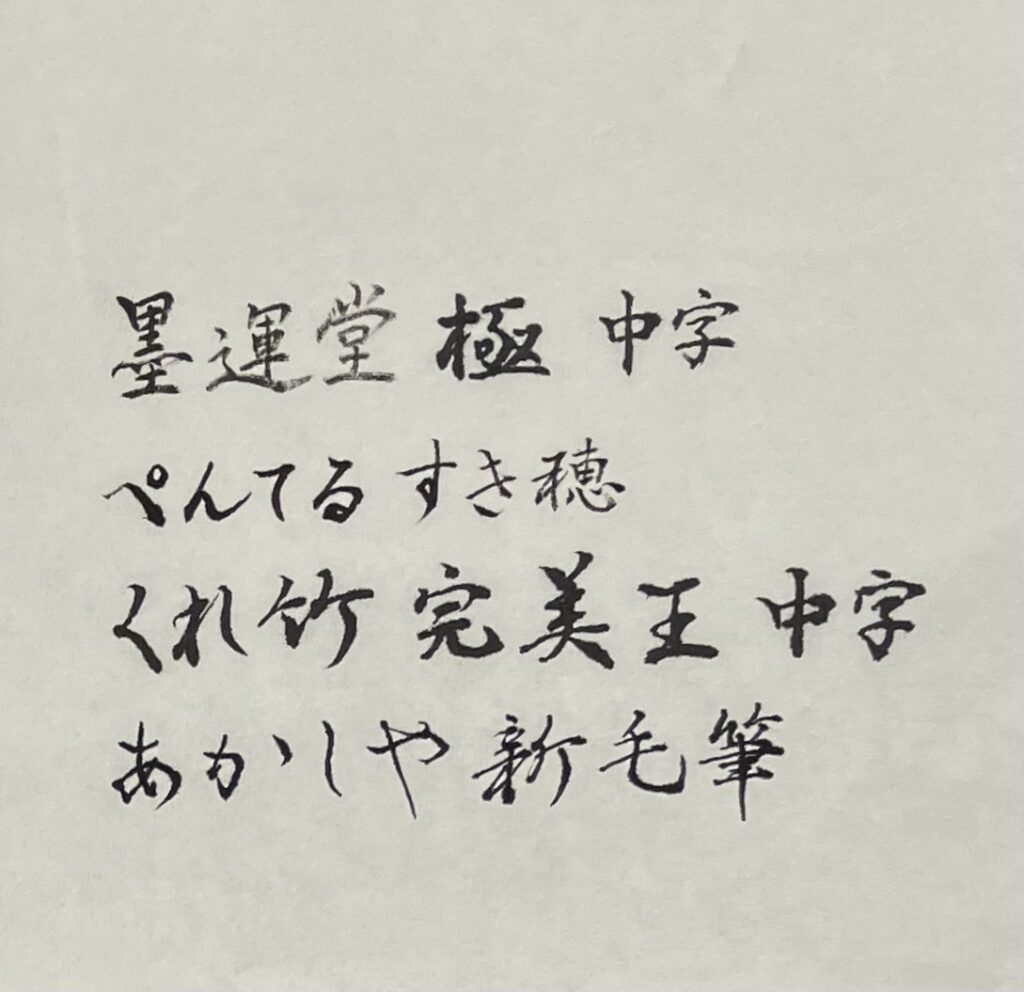 墨運堂 極 中字
ぺんてる すき穂
くれ竹 完美王 中字
あかしや 新毛筆